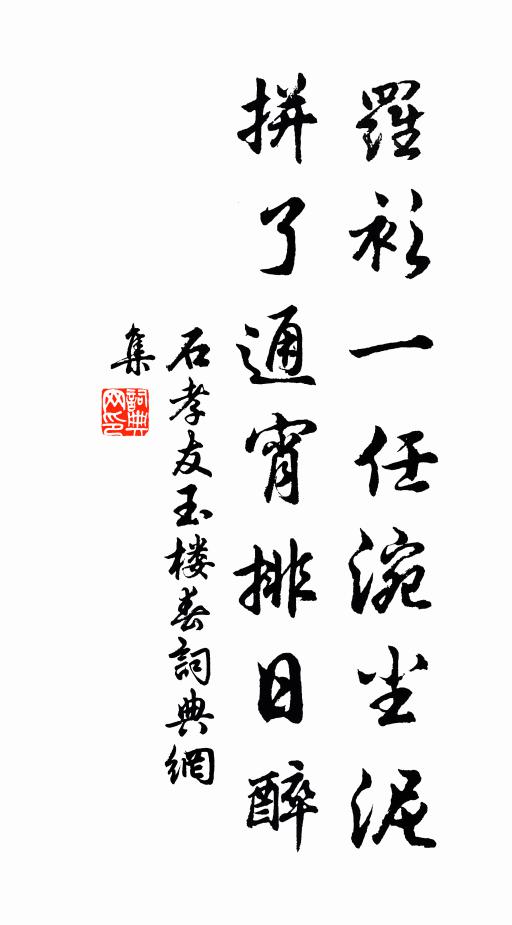 羅衫一任涴尘泥
拼了通宵排日醉
石孝友玉楼春詞典網
集
詞典
网印